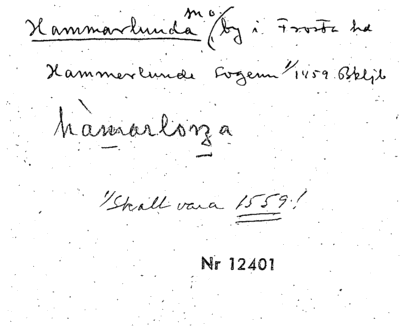 Hammarlunda mo/by i. Frosta hd
Hammerlunde Sogenn 1/ 1459 Bkljb
hàmarlonza
1/ Skall vara 1559!
Nr 12401